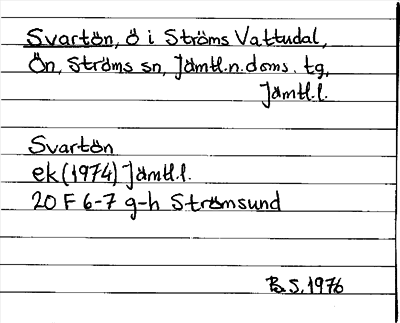 Svartön, ö i Ströms Vattudal,
Ön, Ströms sn, Jämtl.n.doms. tg,
Jämtl.l.
Svartön
ek (1974) Jämtl.l.
20 F 6-7 g-h Strömsund
B.S. 1976